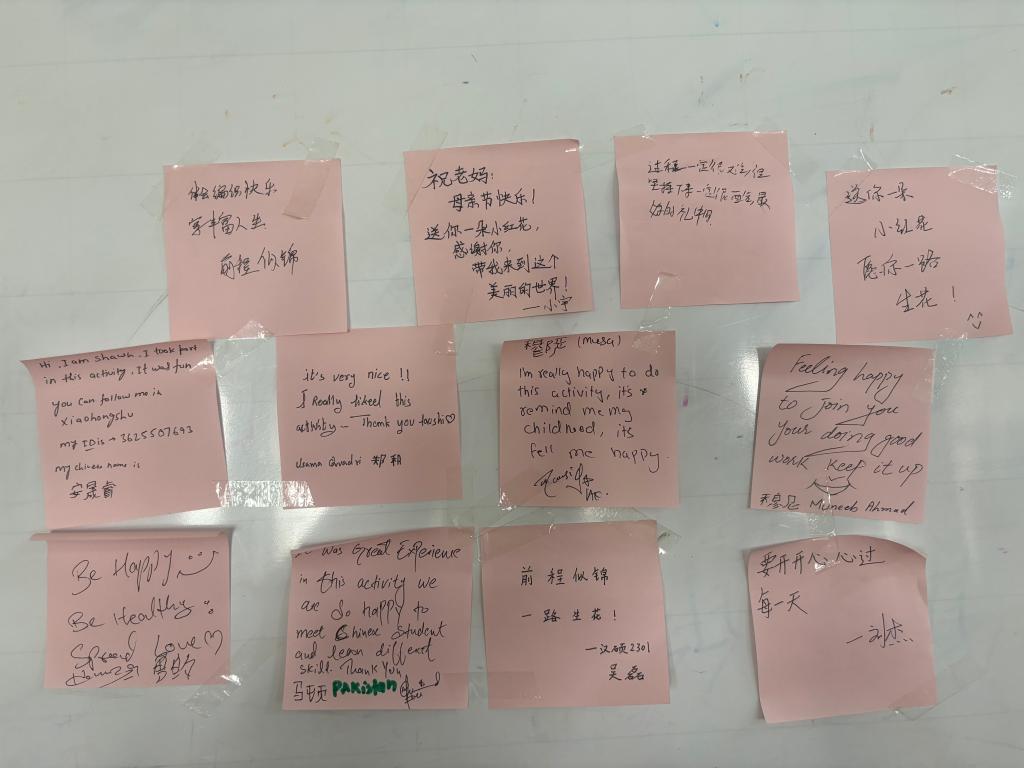 体会编织快乐
享丰富人生
前程似锦
祝老妈:
母亲节快乐!
送你一朵小红花,
感谢你,
带我来到这个
美丽的世界!
—小宇
过程一定很艰难,但
坚持下来一定能
的礼物
送你一朵
小红花
愿你一路
生花!
^^
Hi, I am shawn. I took part
in this activity, It was fun
you can follow me in
Xiaohongshu
my ID is → 3625507693
my chinese name is
安晟睿
it's very nice !!
I Really likeed this
activity — Thank you laoshi♡
Usama Quadri 郑和
穆萨 (Musa)
I'm really happy to do
this activity, its
remind me my
childhood, its
fell me happy.
Feeling happy
to join you
your doing good
work keep it up
穆尼 Muneeb Ahmad
Be Happy
Be Healthy
Spread Love♡
It was Great Experience
in this activity we
are so happy to
meet Chinese student
and learn different
skill. Thank You
PAKistan
前程似锦
一路生花!
—汉硕2301
吴磊
要开开心心过
每一天
—刘杰